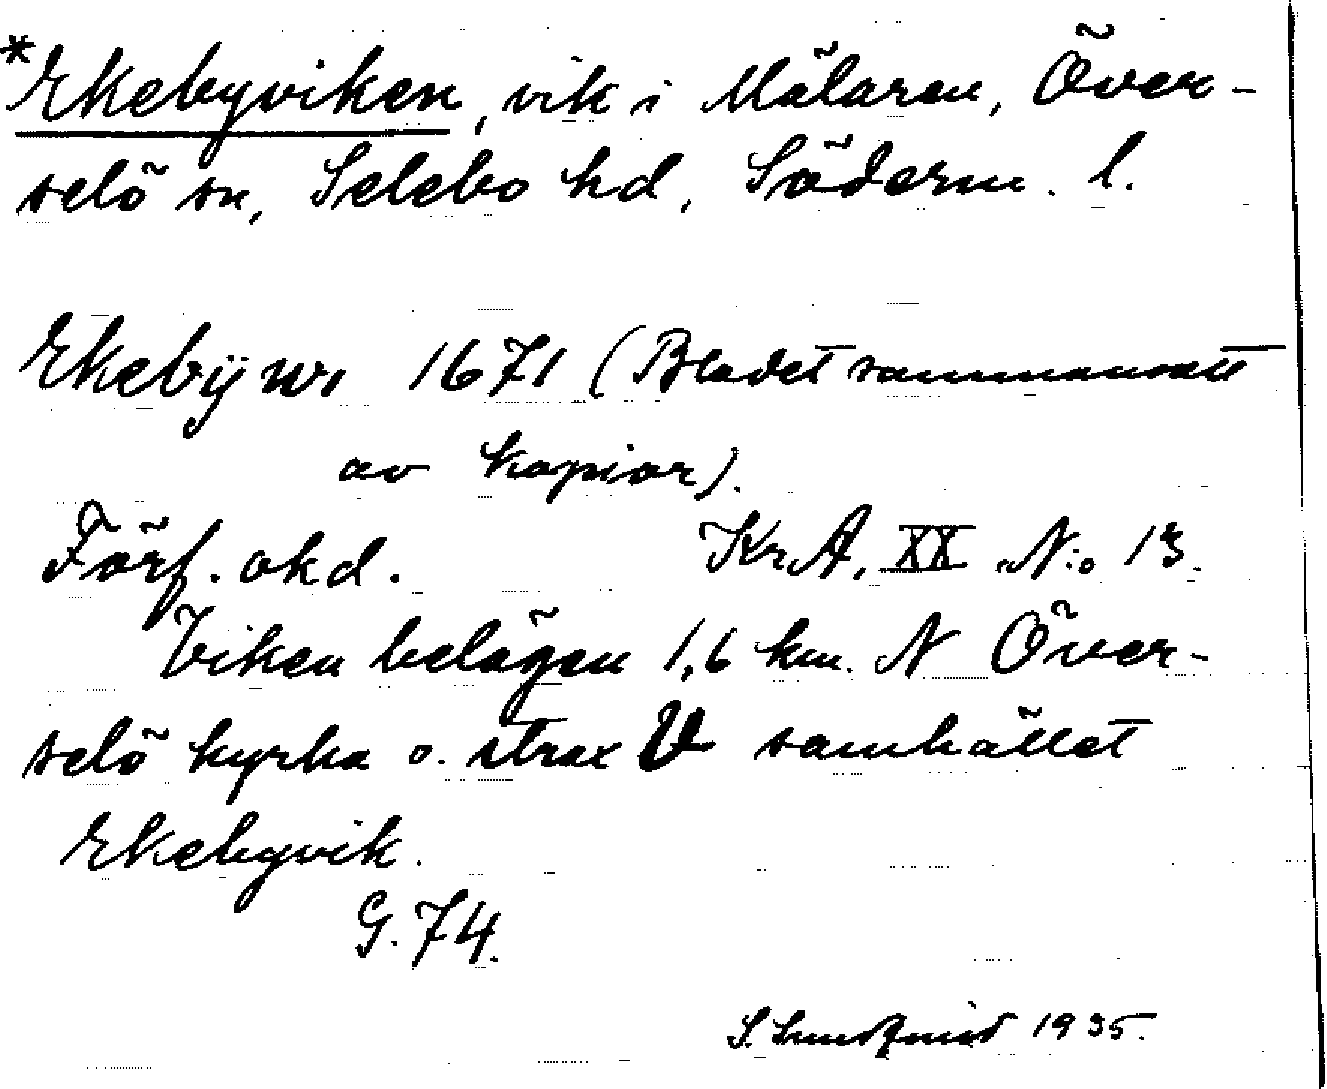 *Ekebyviken, vik i Mälaren, Över-
selö sn, Selebo hd, Söderm. l.
Ekebÿ wi 1671 (Bladet sammansatt
av kopior).
Förf. okd. KrA, XX N:o 13.
Viken belägen 1,6 km. N Över-
selö kyrka o. strax V samhället
Ekebyvik.
G. 74.
S. Lundquist 1935.